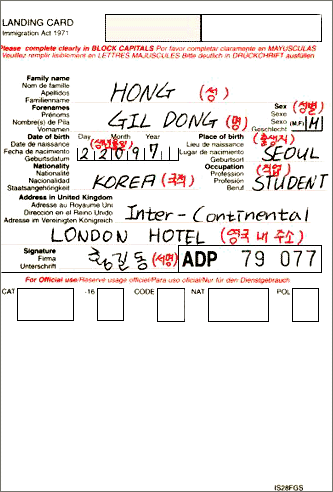 LANDING CARD
Immigration Act 1971
Please complete clearly in BLOCK CAPITALS Por favor completar claramente en MAYUSCULAS
Veuillez remplir lisiblement en LETTRES MAJUSCULES Bitte deutlich in DRUCKSCHRIFT ausfüllen
Family name
Nom de famille
Apellidos
Familienname
HONG (성)
Forenames
Prénoms
Nombre(s) de Pila
Vornamen
GIL DONG (명)
Sex (성별)
Sexe
Sexo
Geschlecht
(M,F) M
Date of birth Day Month Year (생년월일)
Date de naissance
Fecha de nacimiento
Geburtsdatum
2 2 0 9 7
Place of birth (출생지)
Lieu de naissance
Lugar de nacimiento
Geburtsort
SEOUL
Nationality
Nationalité
Nacionalidad
Staatsangehörigkeit
KOREA (국적)
Occupation (직업)
Profession
Profesión
Beruf
STUDENT
Address in United Kingdom
Adresse au Royaume Uni
Direccion en el Reino Unido
Adresse im Vereinigten Königreich
Inter-Continental
LONDON HOTEL (영국 내 주소)
Signature
Firma
Unterschrift
홍길동 (서명)
ADP 79 077
For Official use/Reserve usage officiel/Para uso oficial/Nur für den Dienstgebrauch
CAT -16 CODE NAT POL
IS28FGS